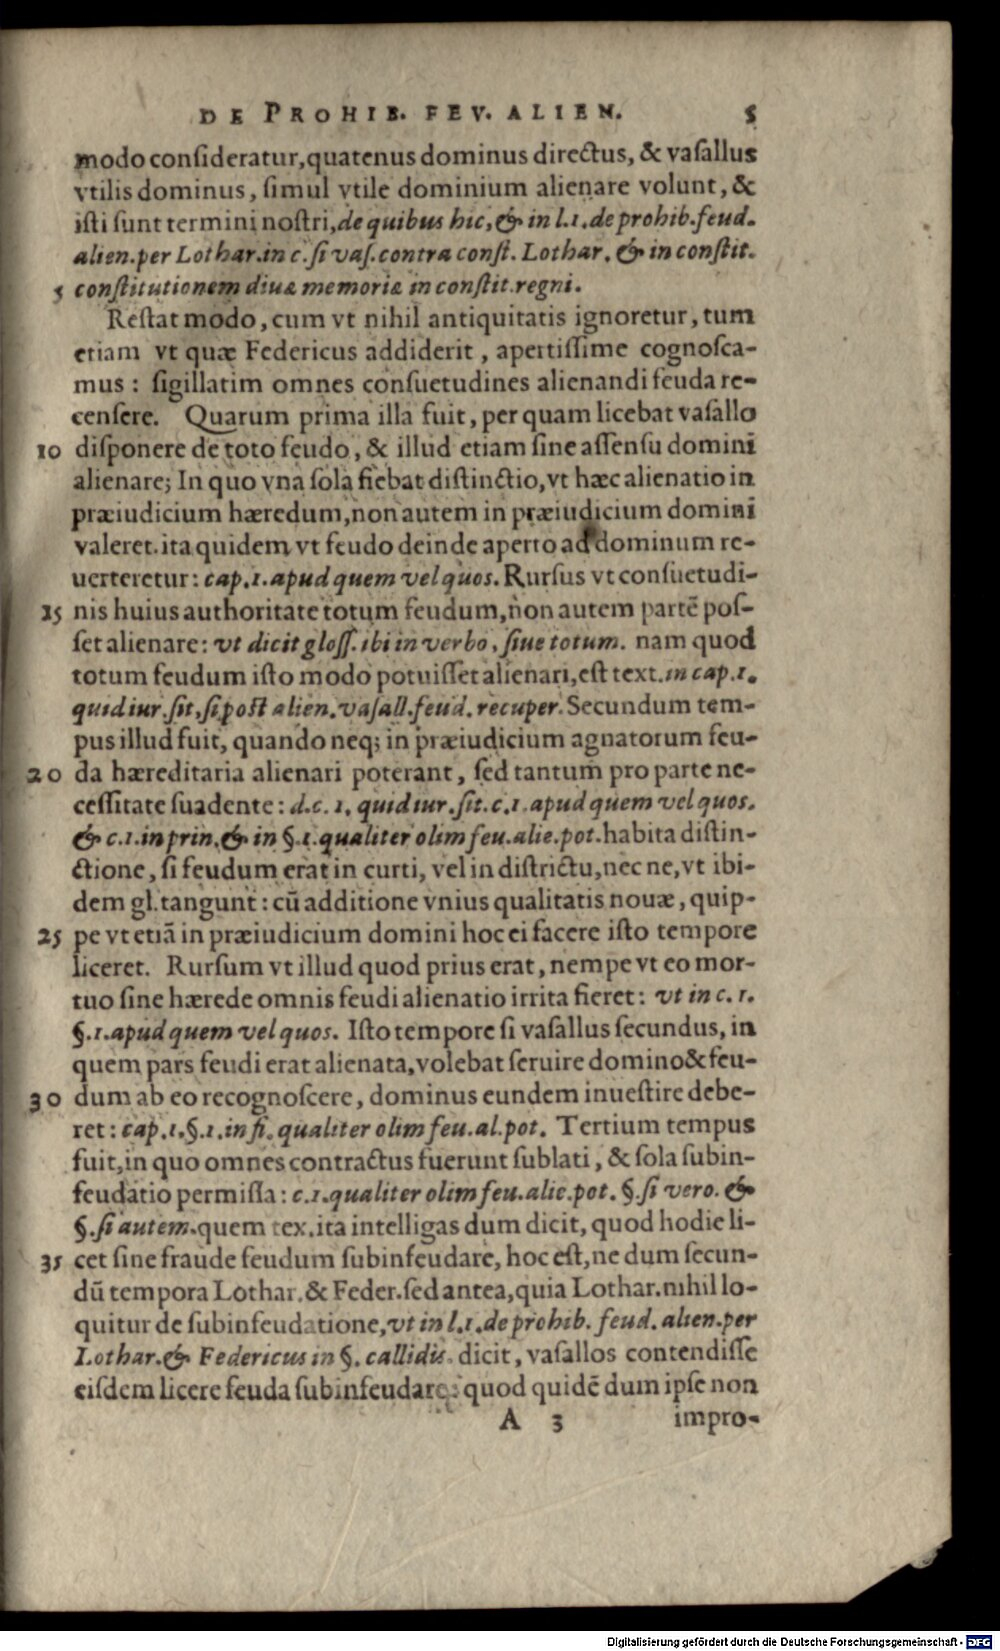 DE PROHIB. FEV. ALIEN. 5
modo consideratur, quatenus dominus directus, & vasallus
vtilis dominus, simul vtile dominium alienare volunt, &
isti sunt termini nostri, de quibus hic, & in l.1. de prohib. feud.
alien. per Lothar. in c. si vas. contra const. Lothar. & in constit.
5 constitutionem diuæ memoriæ in constit. regni.
Restat modo, cum vt nihil antiquitatis ignoretur, tum
etiam vt quæ Federicus addiderit, apertissime cognosca-
mus: sigillatim omnes consuetudines alienandi feuda re-
censere. Quarum prima illa fuit, per quam licebat vasallo
10 disponere de toto feudo, & illud etiam sine assensu domini
alienare; In quo vna sola fiebat distinctio, vt hæc alienatio in
præiudicium hæredum, non autem in præiudicium domini
valeret. ita quidem vt feudo deinde aperto ad dominum re-
uerteretur: cap. 1. apud quem vel quos. Rursus vt consuetudi-
15 nis huius authoritate totum feudum, non autem partẽ pos-
set alienare: vt dicit gloss. ibi in verbo, siue totum. nam quod
totum feudum isto modo potuisset alienari, est text. in cap. 1.
quid iur. sit, si post alien. vasall. feud. recuper. Secundum tem-
pus illud fuit, quando neq; in præiudicium agnatorum feu-
20 da hæreditaria alienari poterant, sed tantum pro parte ne-
cessitate suadente: d.c. 1. quid iur. sit. c.1. apud quem vel quos.
& c.1. in prin. & in §.1. qualiter olim feu. alie. pot. habita distin-
ctione, si feudum erat in curti, vel in districtu, nec ne, vt ibi-
dem gl. tangunt: cū additione vnius qualitatis nouæ, quip-
25 pe vt etiã in præiudicium domini hoc ei facere isto tempore
liceret. Rursum vt illud quod prius erat, nempe vt eo mor-
tuo sine hærede omnis feudi alienatio irrita fieret: vt in c. 1.
§.1. apud quem vel quos. Isto tempore si vasallus secundus, in
quem pars feudi erat alienata, volebat seruire domino & feu-
30 dum ab eo recognoscere, dominus eundem inuestire debe-
ret: cap.1. §.1. in fi. qualiter olim feu. al. pot. Tertium tempus
fuit, in quo omnes contractus fuerunt sublati, & sola subin-
feudatio permissa: c.1. qualiter olim feu. alie. pot. §. si vero. &
§. si autem. quem tex. ita intelligas dum dicit, quod hodie li-
35 cet sine fraude feudum subinfeudare, hoc est, ne dum secun-
dū tempora Lothar. & Feder. sed antea, quia Lothar. nihil lo-
quitur de subinfeudatione, vt in l.1. de prohib. feud. alien. per
Lothar. & Federicus in §. callidis. dicit, vasallos contendisse
eisdem licere feuda subinfeudare: quod quidẽ dum ipse non
A 3 impro-
Digitalisierung gefördert durch die Deutsche Forschungsgemeinschaft - DFG